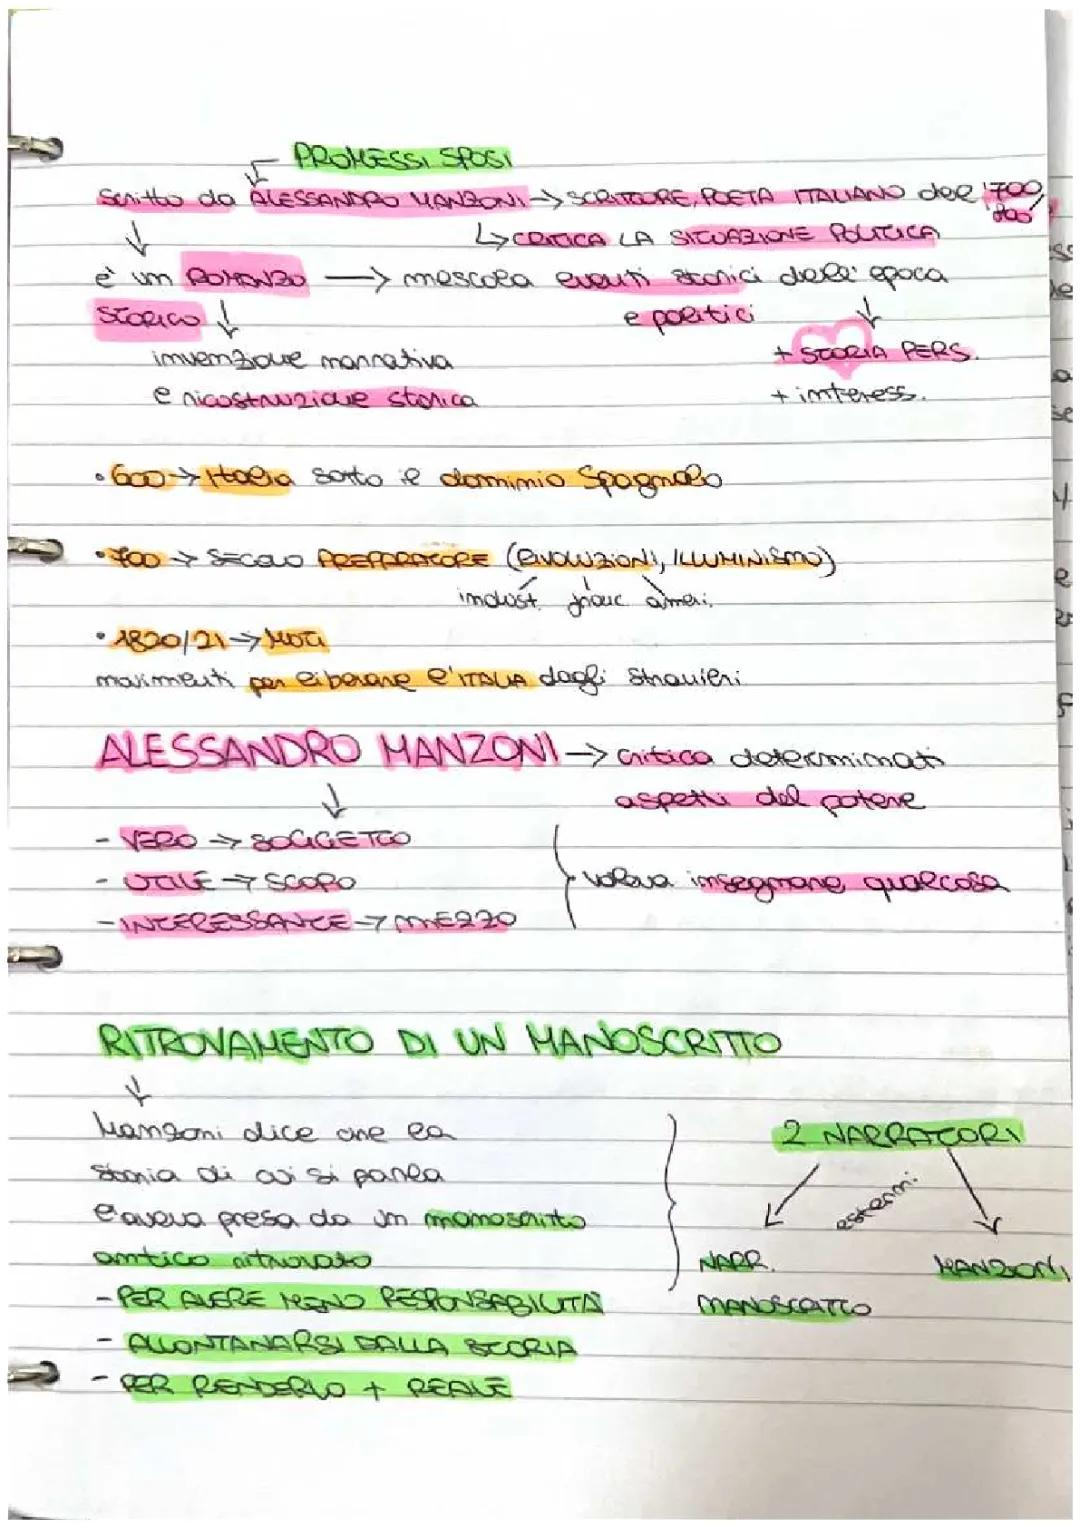 PROMESSI SPOSI
Scritto da ALESSANDRO MANZONI → SCRITTORE, POETA ITALIANO del '700/'800
↳ CRITICA LA SITUAZIONE POLITICA
è un ROMANZO → mescola eventi storici dell'epoca
STORICO ↓ e politici ↓
invenzione narrativa + STORIA PERS.
e ricostruzione storica + interess.
• 600 → Italia sotto il dominio Spagnolo
• 700 → SECOLO PREPARATORE (RIVOLUZIONI, ILLUMINISMO)
indust. franc. ameri.
• 1820/21 → MOTI
movimenti per liberare l'ITALIA dagli stranieri
ALESSANDRO MANZONI → critica determinati
aspetti del potere
- VERO → SOGGETTO
- UTILE → SCOPO voleva insegnare qualcosa
- INTERESSANTE → MEZZO
RITROVAMENTO DI UN MANOSCRITTO
Manzoni dice che la 2 NARRATORI
storia di cui si parla
l'aveva presa da un manoscritto esterni
antico ritrovato NARR. MANZONI
- PER AVERE MENO RESPONSABILITÀ MANOSCRITTO
- ALLONTANARSI DALLA STORIA
- PER RENDERLO + REALE